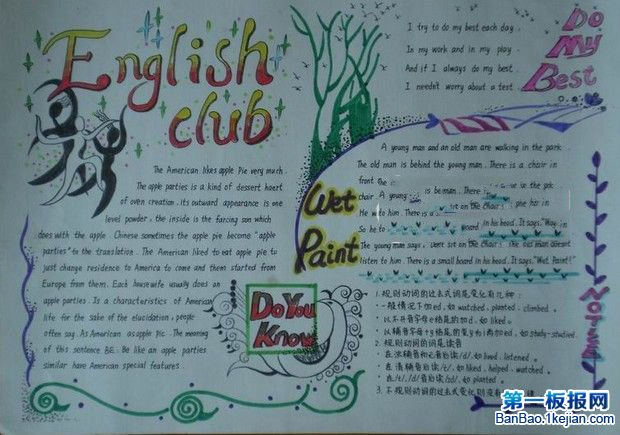 English
club
The American likes apple Pie very much.
The apple parties is a kind of dessert hoert
of oven creation. Its outward appearance is one
level powder, the inside is the farcing son which
does with the apple. Chinese sometimes the apple pie become "apple
parties" to the translation. The American liked to eat apple pie to
just change residence to America to come and them started from
Europe from them. Each housewife usually does an
apple parties. Is a characteristics of American
life for the sake of the elucidation, people
often say. As American as apple pie. The meaning
of this sentence BE: Be like an apple parties
similar have American special features
Do You
Know
I try to do my best each day.
In my work and in my play.
And if I always do my best.
I needn't worry about a test.
Do
My
Best
Wet
Paint
A young man and an old man are walking in the park.
The old man is behind the young man. There is a chair in
front
chair. A young is be man. There is
He to him. There is a on the chair
So he to board in his head. It says "
The young man says sit on the chair. The old man doesn't
listen to him. There is a small board in his head. It says "Wet Paint!"
1. 规则动词的过去式词是变化有几种:
一般情况下加ed, 如 watched. planted. climbed.
以不开音字母e结尾的加d. 如 liked.
以辅音字母+y结尾的变y为i再加ed, 如 study-studied.
2. 规则动词的词是读音
在浊辅音和元音后读/d/. 如 listened.
在清辅音后读/t/. 如 liked. helped. watched.
在/t/, /d/音后读/id/, 如 planted.
3. 不规则动词的过去式变化则
第一板报网
BanBao.1kejian.com